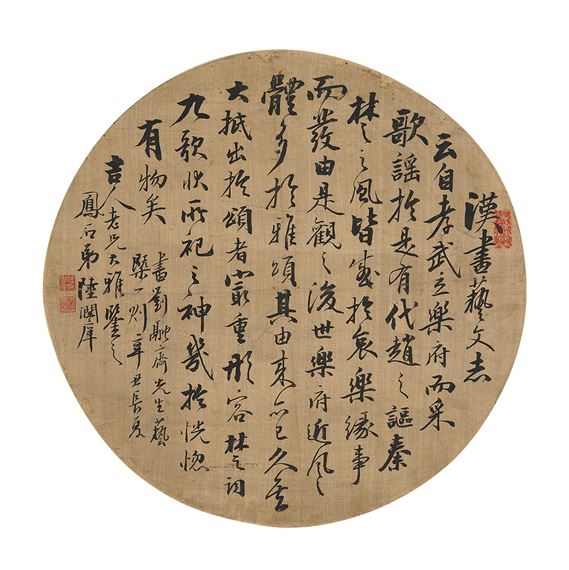 漢書藝文志
云自孝武立樂府而采
歌謠於是有代趙之謳秦
楚之風皆感於哀樂緣事
而發由是觀之後世樂府近風之
體多於雅頌其由來亦已久矣
大抵出於頌者冣重形容楚詞
九歌狀所祀之神幾於恍惚
有物矣
書劉融齋先生藝
槩一則辛丑長夏
吉人老兄大雅鑒之
鳳石弟陸潤庠